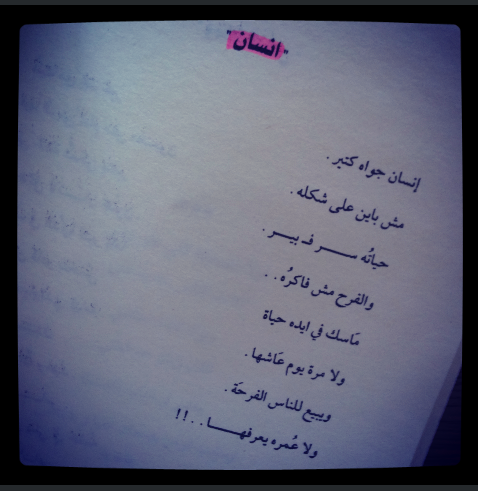 "انسان"
إنسان جواه كتير .
مش باين على شكله .
حياتُه ســـر فـ بيـــر .
والفرح مش فاكرُه . .
مَاسك في ايده حياة
ولا مرة يوم عَاشها .
ويبيع للناس الفرحَة .
ولا عُمره يعرفهـــا . . !!